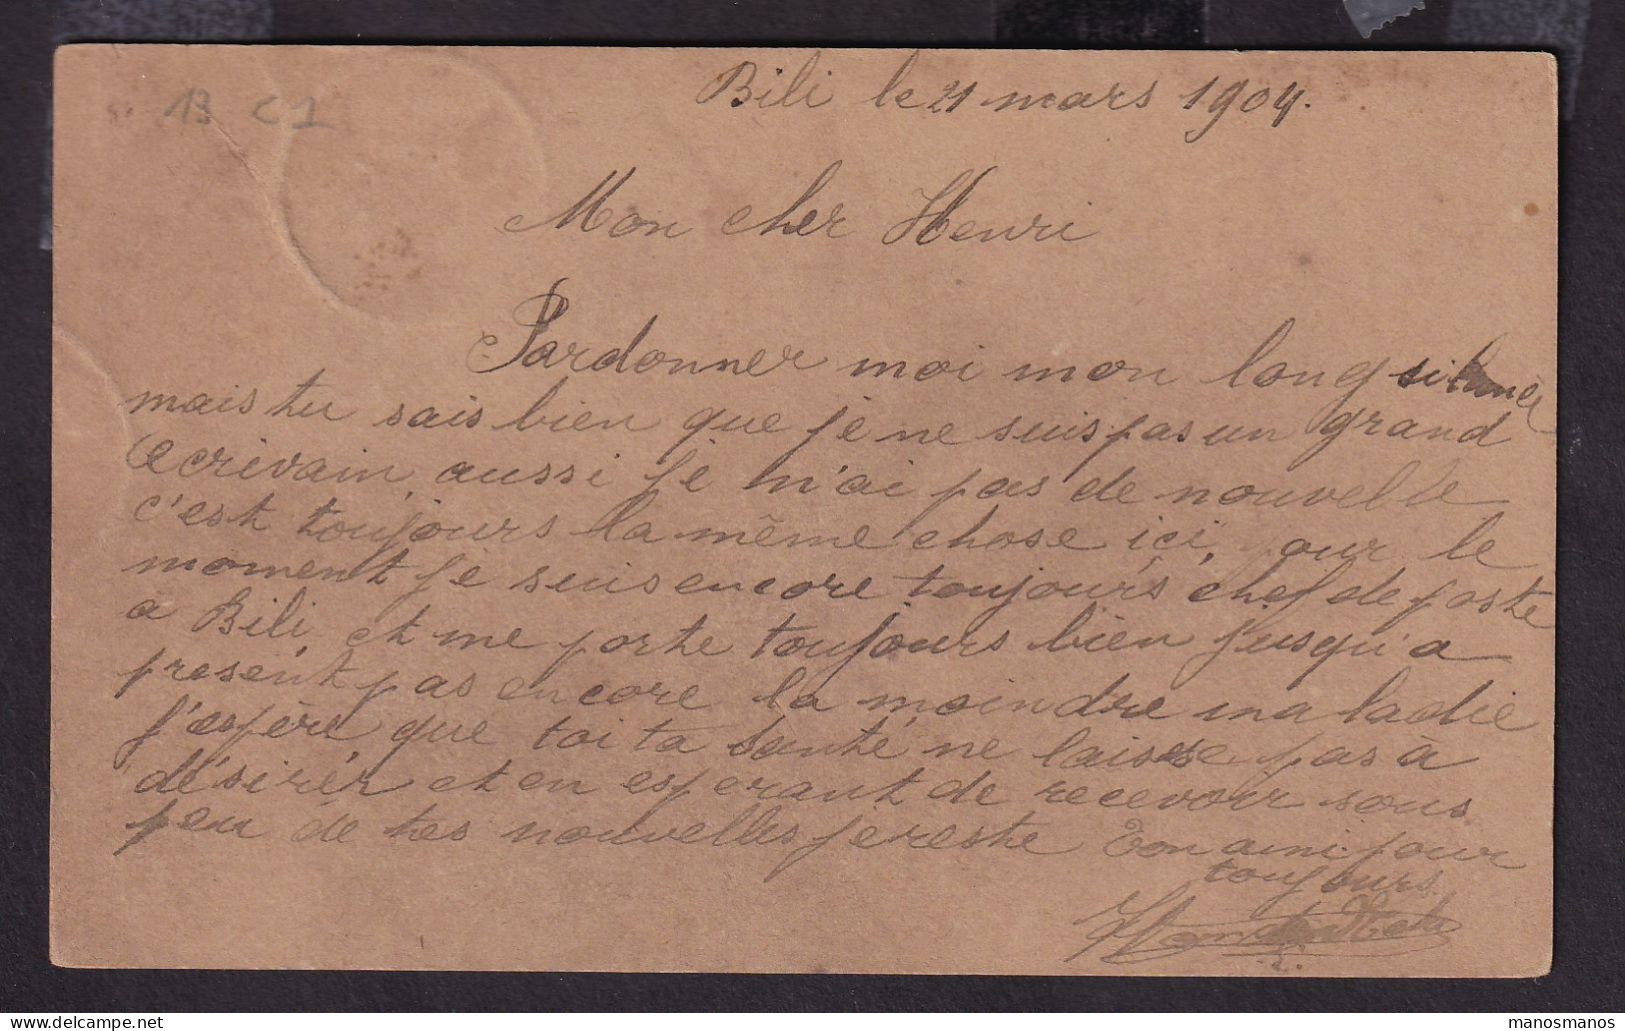 13 C1
Bili le 21 mars 1904.
Mon cher Henri
Pardonner moi mon long silence
mais tu sais bien que je ne suis pas un grand
écrivain, aussi je n'ai pas de nouvelle
c'est toujours la même chose ici, pour le
moment je suis encore toujours chef de poste
a Bili, et me porte toujours bien jusqu'a
present pas encore la moindre maladie
j'espère que toi ta santé ne laisse pas à
désirér et en esperant de recevoir sous
peu de tes nouvelles je reste Ton ami pour
toujours
manosmanos